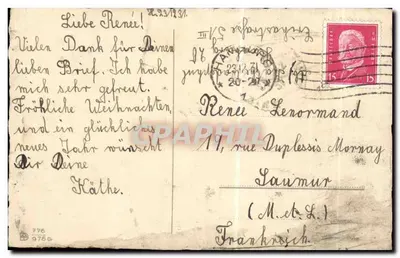 22.XII.1931.
Liebe Renée!
Vielen Dank für Deinen
lieben Brief. Ich habe
mich sehr gefreut.
Fröhliche Weihnachten
und ein glückliches
neues Jahr wünscht
Dir Deine
Käthe.
776
976
HAMBURG
20-21
15 15
Renée Lenormand
17, rue Duplessis Mornay
Saumur
(M. et L.)
Frankreich
CARTE
POSTALE